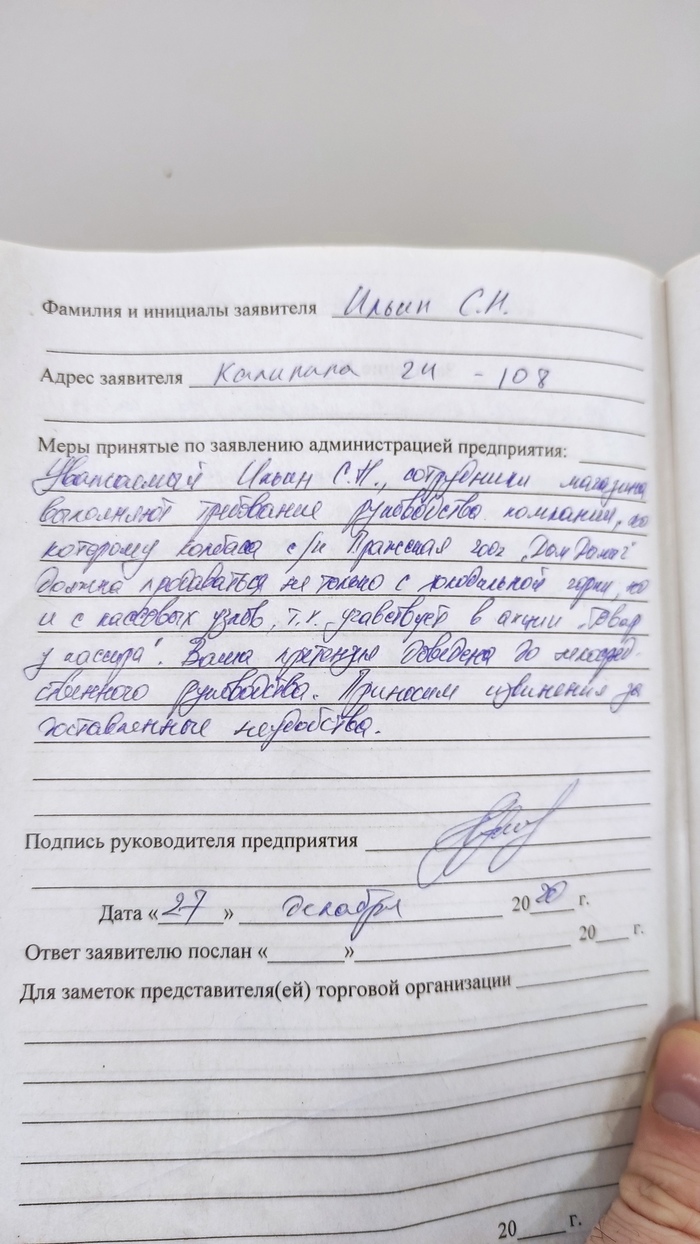 Фамилия и инициалы заявителя Ильин С.Н.
Адрес заявителя Калинина 24 - 108
Меры принятые по заявлению администрацией предприятия:
Уважаемый Ильин С.Н., сотрудники магазина
выполняют требование руководства компании, по
которому колбаса с/к Пражская 200г „Дом
должна продаваться не только с холодильной горки, но
и с кассовых узлов, т.к. участвует в акции „Товар
у кассира". Ваша претензия доведена до непосред-
ственного руководства. Приносим извинения за
доставленные неудобства.
Подпись руководителя предприятия
Дата «27» декабря 2020 г.
Ответ заявителю послан «» 20 г.
Для заметок представителя(ей) торговой организации
20 г.